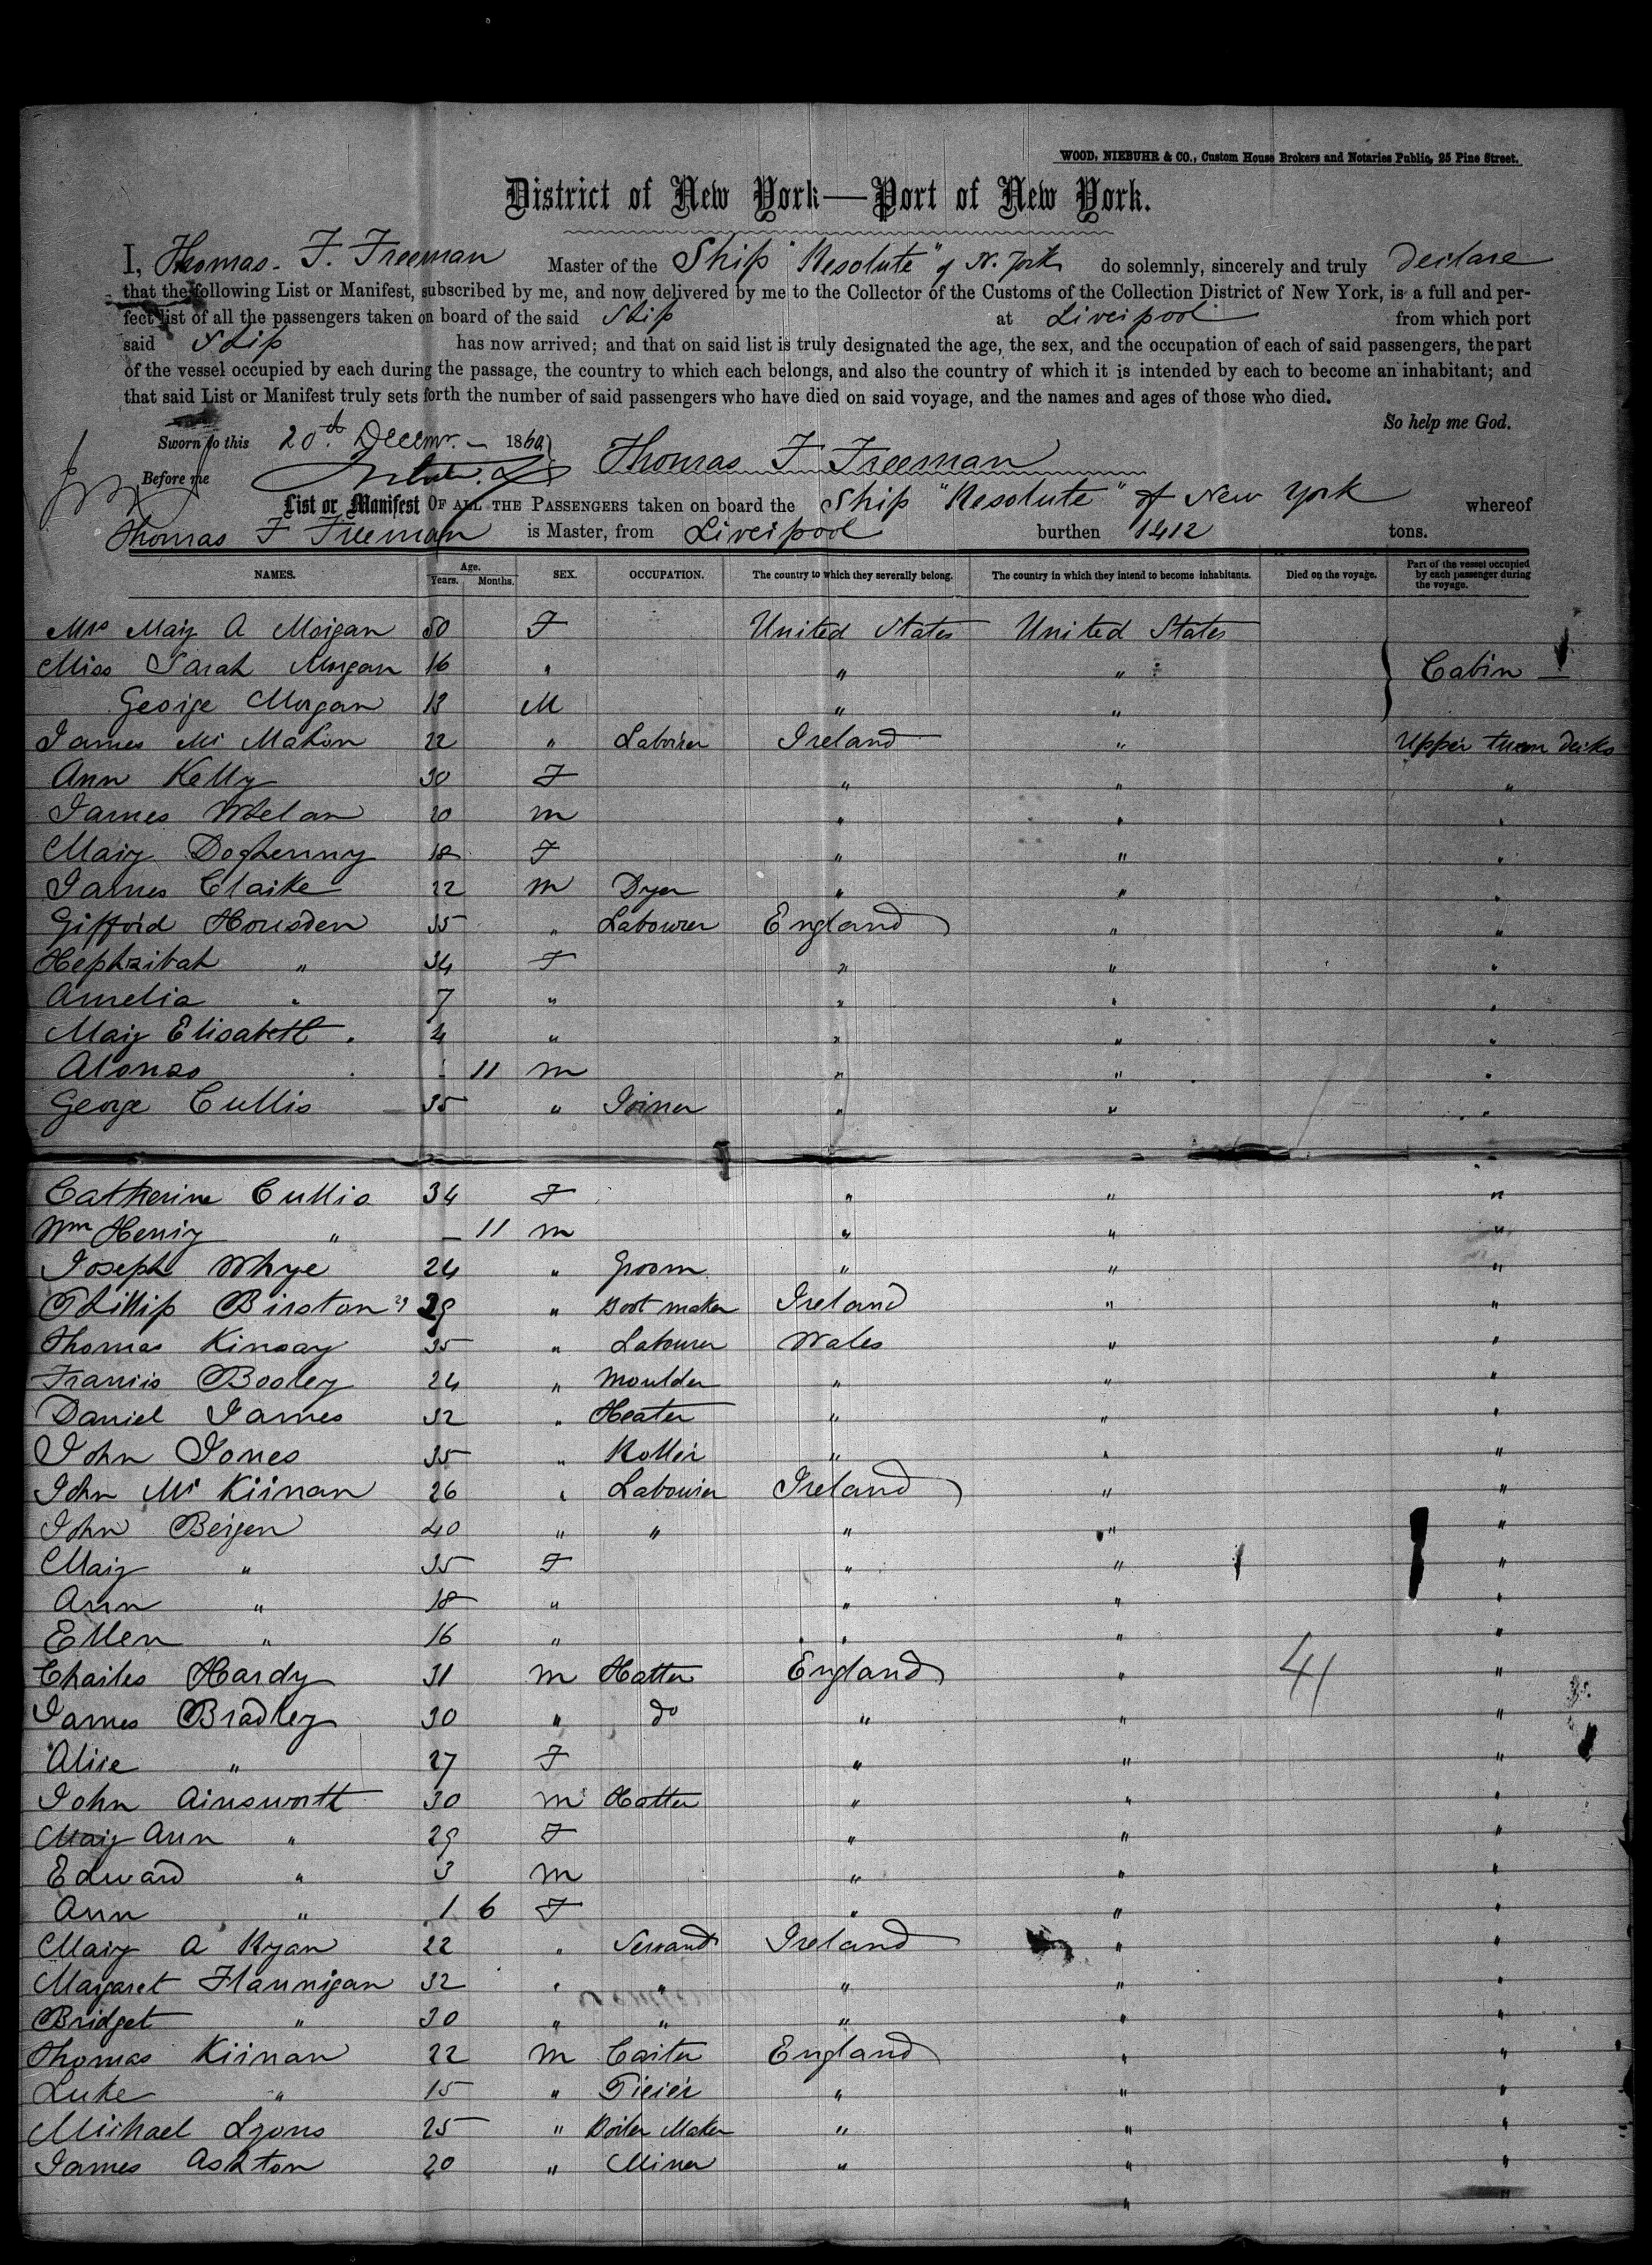 WOOD, NIEBUHR & CO., Custom House Brokers and Notaries Public, 25 Pine Street.
District of New York—Port of New York.
I, Thomas. F. Freeman Master of the Ship "Resolute" of N. York do solemnly, sincerely and truly declare
that the following List or Manifest, subscribed by me, and now delivered by me to the Collector of the Customs of the Collection District of New York, is a full and per-
fect list of all the passengers taken on board of the said Ship at Liverpool from which port
said Ship has now arrived; and that on said list is truly designated the age, the sex, and the occupation of each of said passengers, the part
of the vessel occupied by each during the passage, the country to which each belongs, and also the country of which it is intended by each to become an inhabitant; and
that said List or Manifest truly sets forth the number of said passengers who have died on said voyage, and the names and ages of those who died.
So help me God.
Sworn to this 20th Decemr. 1860
Thomas F Freeman
Before me
List or Manifest OF ALL THE PASSENGERS taken on board the Ship "Resolute" of New York whereof
Thomas F Freeman is Master, from Liverpool burthen 1412 tons.
NAMES. Age. Years. Months. SEX. OCCUPATION. The country to which they severally belong. The country in which they intend to become inhabitants. Died on the voyage. Part of the vessel occupied by each passenger during the voyage.
Mrs Mary A Morgan 50 F United States United States
Miss Sarah Morgan 16 " " " } Cabin
George Morgan 13 M " "
James Mc Mahon 22 " Labourer Ireland " Upper tween decks
Ann Kelly 30 F " " "
James Whelan 20 m " " "
Mary Doghenny 18 F " " "
James Clarke 22 m Dyer " " "
Gifford Housden 35 " Labourer England " "
Hephzibah " 34 F " " "
Amelia " 7 " " " "
Mary Elisabeth " 4 " " " "
Alonzo " - 11 m " " "
George Cullis 35 " Joiner " " "
Catherine Cullis 34 F " " "
Wm Henry " - 11 m " " "
Joseph Whye 24 " Groom " " "
Phillip Birston 29 29 " Boot maker Ireland " "
Thomas Kinsay 35 " Labourer Wales " "
Francis Booley 24 " Moulder " " "
Daniel James 32 " Heater " " "
John Jones 35 " Roller " " "
John Mc Kiinan 26 " Labourer Ireland " "
John Bergen 40 " " " " "
Mary " 35 F " " "
Ann " 18 " " " "
Ellen " 16 " " " "
Charles Hardy 31 m Hatter England " 41 "
James Bradley 30 " do " " "
Alice " 27 F " " "
John Ainsworth 30 m Hatter " " "
Mary Ann " 29 F " " "
Edward " 3 m " " "
Ann " 1 6 F " " "
Mary A Ryan 22 " Servant Ireland " "
Margaret Flannigan 32 " " " " "
Bridget " 30 " " " " "
Thomas Kiinan 22 m Carter England " "
Luke " 15 " " " "
Michael Lyons 25 " Boiler Maker " " "
James Ashton 20 " Miner " " "
" "